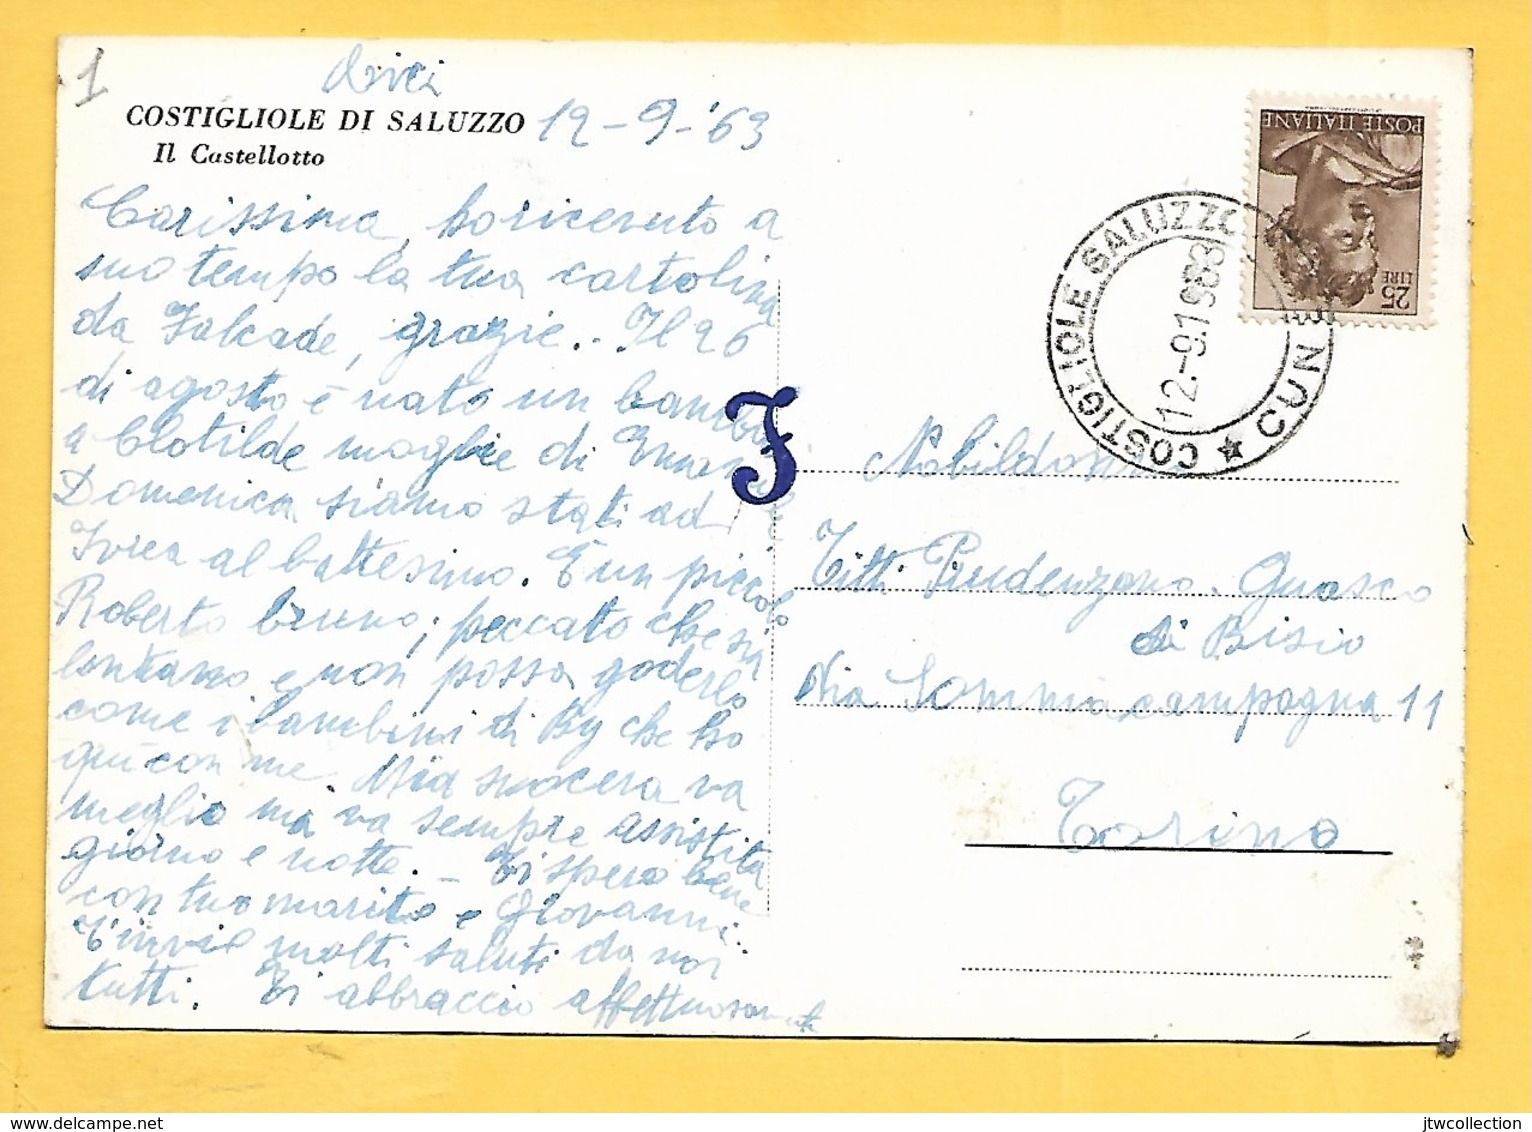 1
COSTIGLIOLE DI SALUZZO 12-9-'63
Il Castellotto
Carissima, ho ricevuto a
suo tempo la tua cartolina
da Falcade, grazie.. Il 26
di agosto è nato un bambino
a Clotilde moglie di Emanuele
Domenica siamo stati ad
Ivrea al battesimo. È un piccolo
Roberto bruno; peccato che sia
lontano e non possa goderlo
come i bambini di By che ho
qui con me. Mia suocera va
meglio ma va sempre assistita
giorno e notte. - Ti spero bene
con tuo marito e Giovanni.
T'invio molti saluti da noi
tutti. Ti abbraccio affettuosamente
POSTE ITALIANE
LIRE 25
COSTIGLIOLE SALUZZO
CUNEO
12-9 1963
F
Nobildonna
Titti Prudenzano. Guasco
di Bisio
Via Sommacampagna 11
Torino
jtwcollection